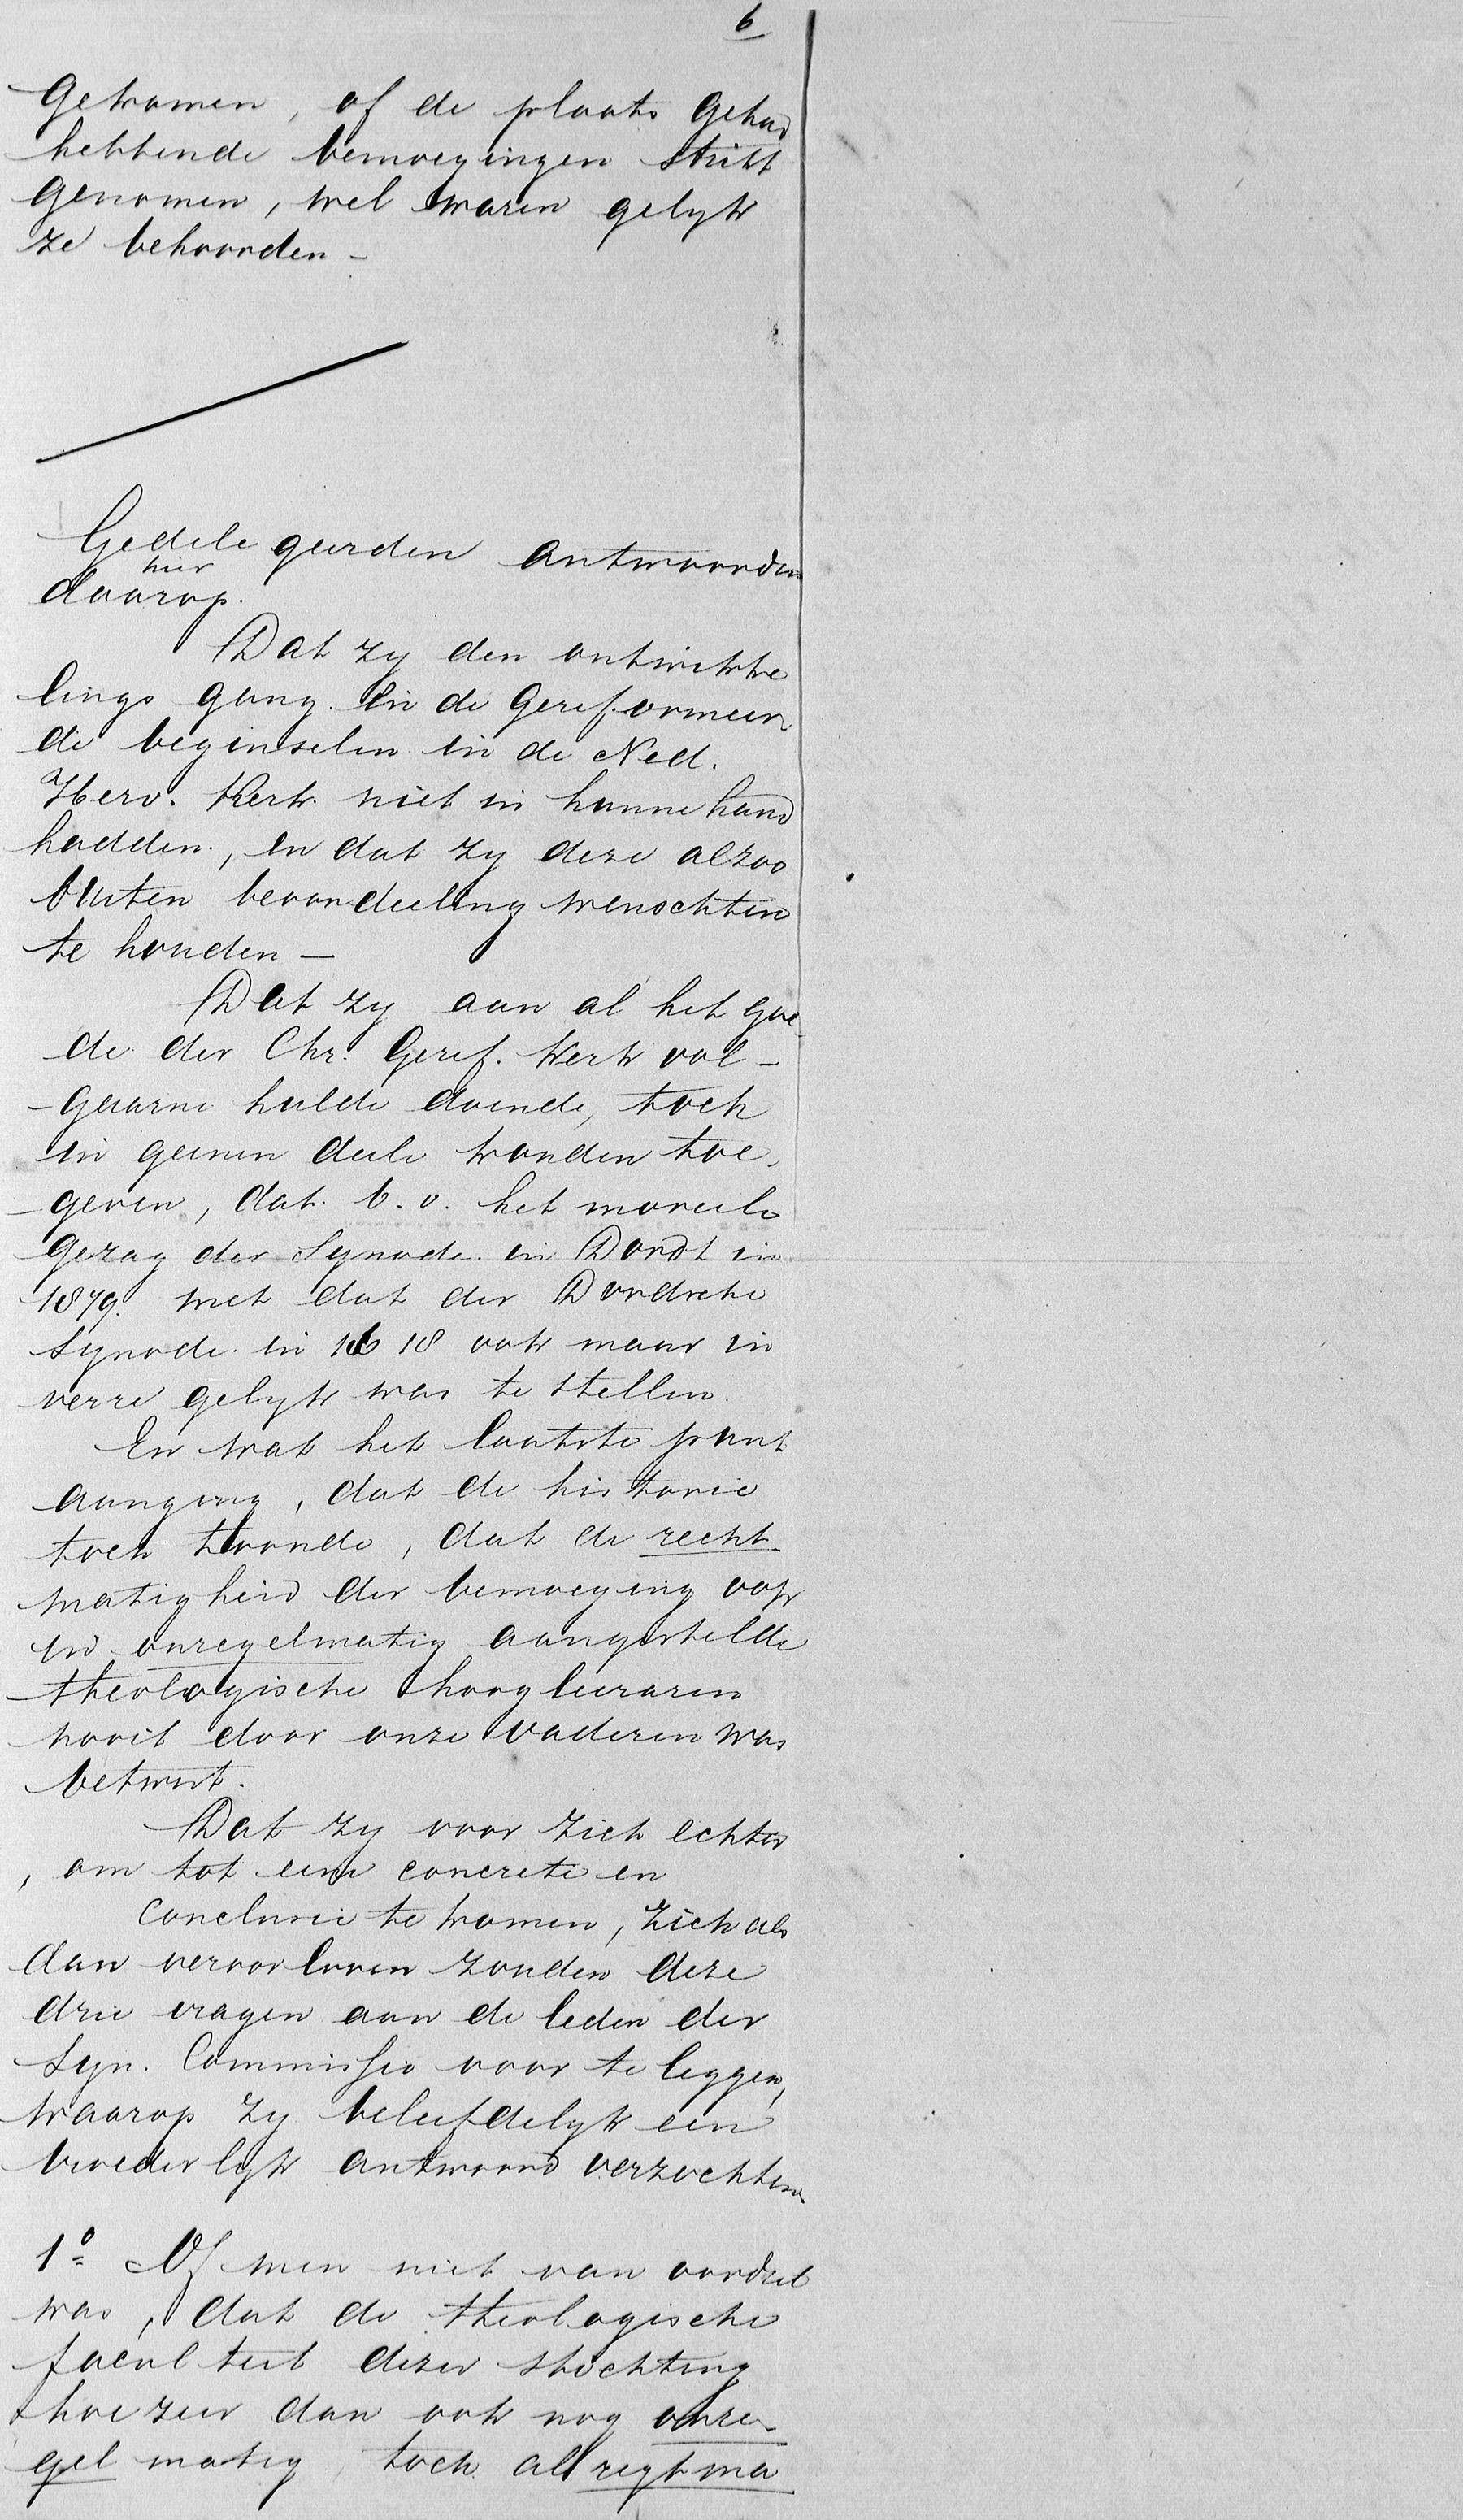 6
Gekomen, of de plaats gehad
hebbende bemoeyingen strikt
genomen, wel waren gelyk
ze behoorden –
Gedelegeerden antwoorden
hier
daarop.
Dat zy den ontwikke
lings gang in de Gereformeer
de beginselen in de Ned.
Herv. Kerk niet in hunne hand
hadden, en dat zy deze alzoo
buiten beoordeeling wenschten
te houden –
Dat zy aan al het goe
de der Chr. Geref. Kerk vol –
– gaarne hulde doende, toch
in geenen deele konden toe,
– geven, dat b.v. het moreele
gezag der Synode in Dordt in
1879. met dat der Dordrche
Synode in 1618 ook maar in
verre gelyk was te stellen.
En wat het laatste punt
aanging, dat de historie
toch toonde, dat de recht
matigheid der bemoeying ook
in onregelmatig aangestelde
theologische hoogleeraren
nooit door onze vaderen was
betwist.
Dat zy voor zich echter
, om tot eene concrete en
Conclusie te komen, zich als
dan veroorloven zouden deze
drie vragen aan de leden der
Syn. Commissie voor te leggen,
waarop zy beleefdelyk een
broederlyk antwoord verzochten
1º Of men niet van oordeel
was, dat de theologische
faculteit dezer stichting
hoezeer dan ook nog onre-
gel matig toch al regtma